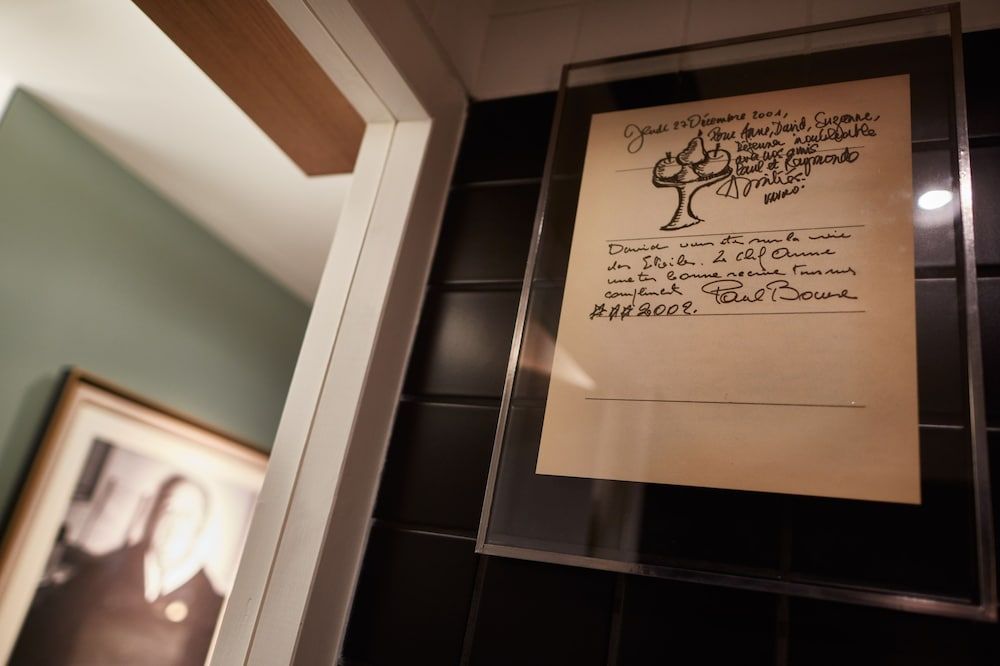 Jeudi 27 Décembre 2001,
Pour Anne, David, Suzanne,
Déjeuner inoubliable
avec vos amis
Paul et Raymonde
Amitiés.
David vous êtes sur la voie
des Etoiles. Le chef Anne
une très bonne recrue tous mes
compliments Paul Bocuse
2002.